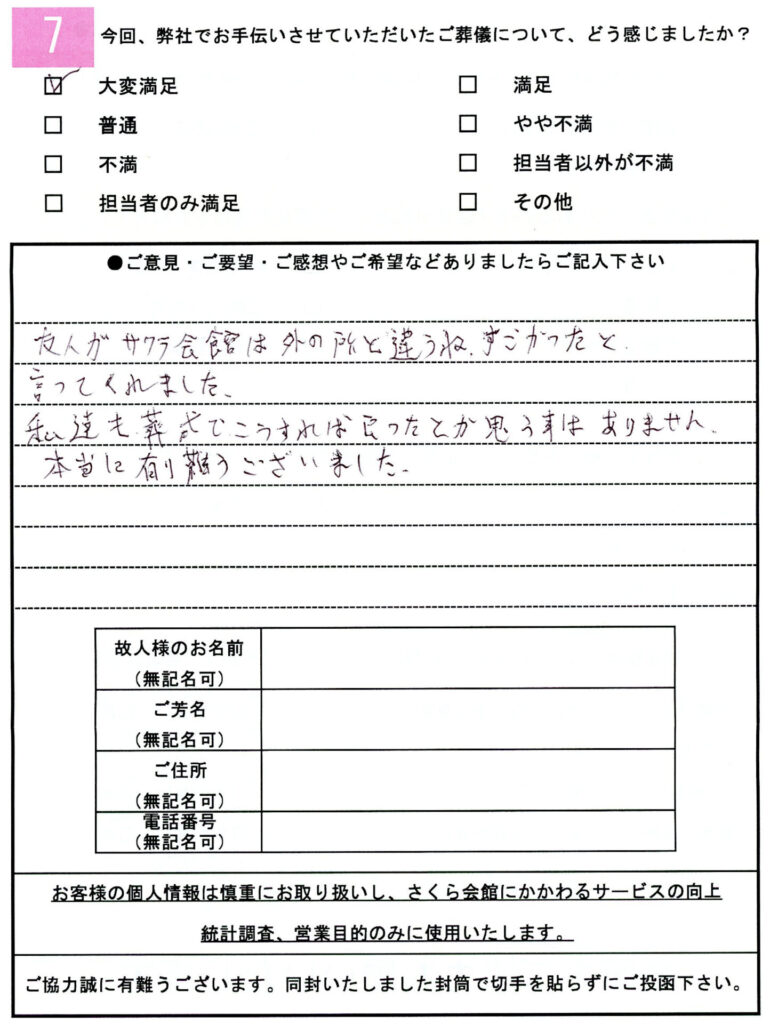 7 今回、弊社でお手伝いさせていただいたご葬儀について、どう感じましたか?
☑ 大変満足 □ 満足
□ 普通 □ やや不満
□ 不満 □ 担当者以外が不満
□ 担当者のみ満足 □ その他
●ご意見・ご要望・ご感想やご希望などありましたらご記入下さい
友人がサクラ会館は外の所と違うね、すごかったと
言ってくれました。
私達も葬式でこうすれば良ったとか思う事はありません。
本当に有り難うございました。
故人様のお名前
(無記名可)
ご芳名
(無記名可)
ご住所
(無記名可)
電話番号
(無記名可)
お客様の個人情報は慎重にお取り扱いし、さくら会館にかかわるサービスの向上
統計調査、営業目的のみに使用いたします。
ご協力誠に有難うございます。同封いたしました封筒で切手を貼らずにご投函下さい。